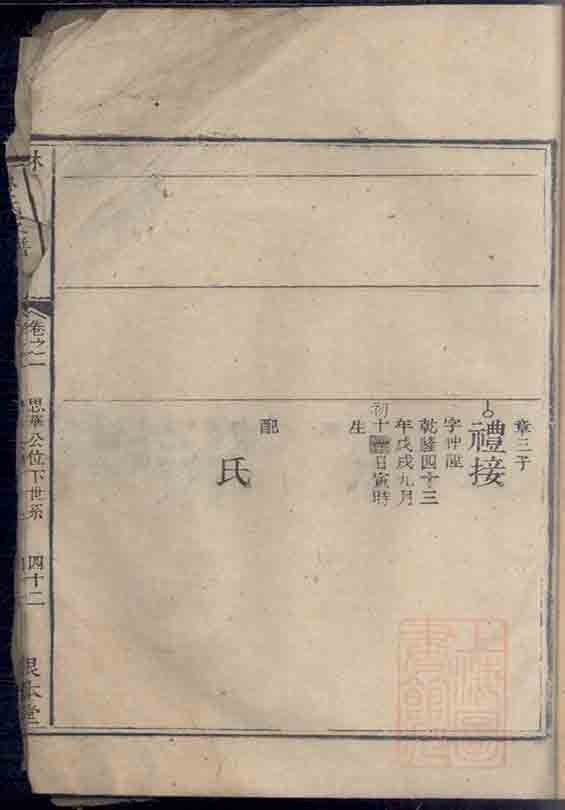 章三子
禮接
字仲
乾隆四十三
年戊戌九月
初十日寅時
生
配
氏
林
譜
卷之二
思華公位下世系
四十二
本堂
上海圖
書館藏